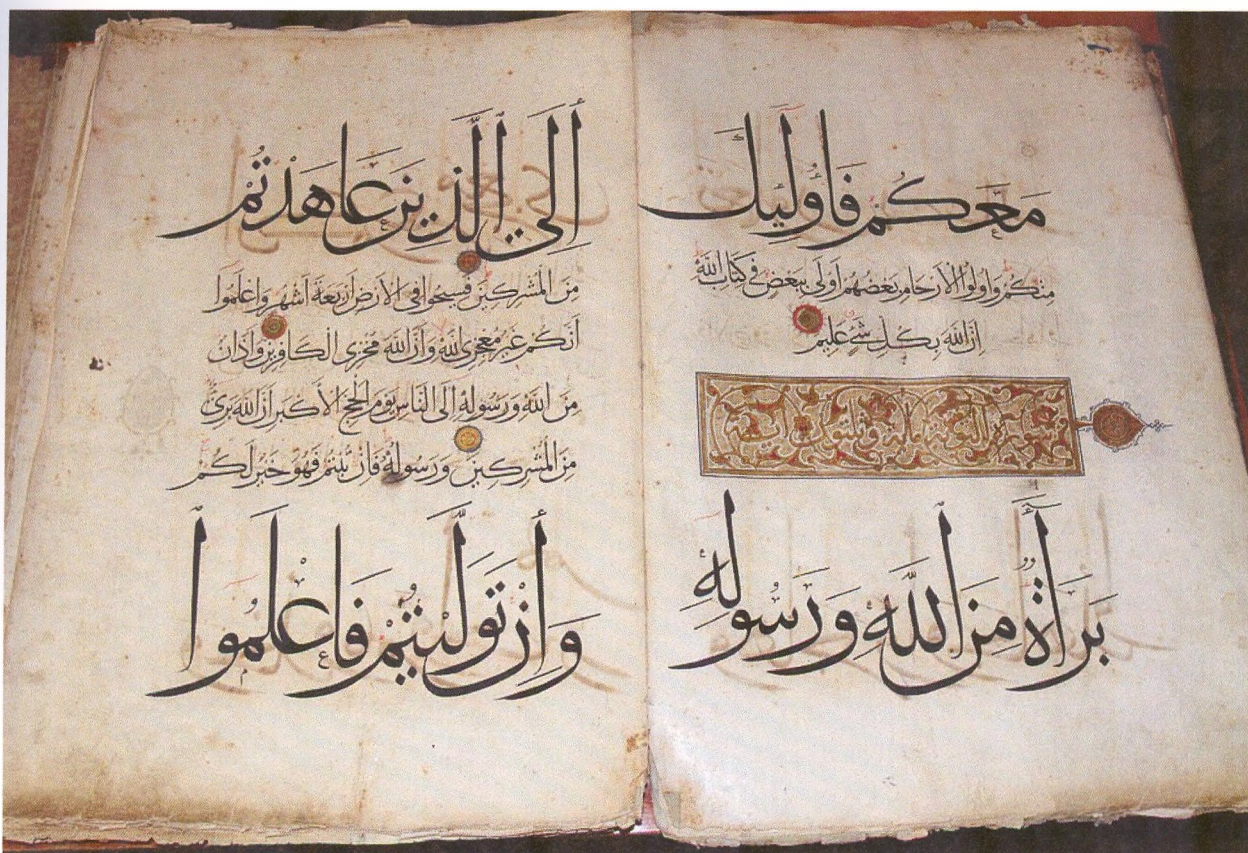 مَعَكُمْ فَأُولَٰئِكَ
مِنكُمْ وَأُولُوا الْأَرْحَامِ بَعْضُهُمْ أَوْلَىٰ بِبَعْضٍ فِي كِتَابِ اللَّهِ
إِنَّ اللَّهَ بِكُلِّ شَيْءٍ عَلِيمٌ
سورة التوبة مائة وثلثون
بَرَاءَةٌ مِنَ اللَّهِ وَرَسُولِهِ
إِلَى الَّذِينَ عَاهَدْتُمْ
مِنَ الْمُشْرِكِينَ فَسِيحُوا فِي الْأَرْضِ أَرْبَعَةَ أَشْهُرٍ وَاعْلَمُوا
أَنَّكُمْ غَيْرُ مُعْجِزِي اللَّهِ وَأَنَّ اللَّهَ مُخْزِي الْكَافِرِينَ وَأَذَانٌ
مِنَ اللَّهِ وَرَسُولِهِ إِلَى النَّاسِ يَوْمَ الْحَجِّ الْأَكْبَرِ أَنَّ اللَّهَ بَرِيءٌ
مِنَ الْمُشْرِكِينَ وَرَسُولُهُ فَإِنْ تُبْتُمْ فَهُوَ خَيْرٌ لَكُمْ
وَإِنْ تَوَلَّيْتُمْ فَاعْلَمُوا